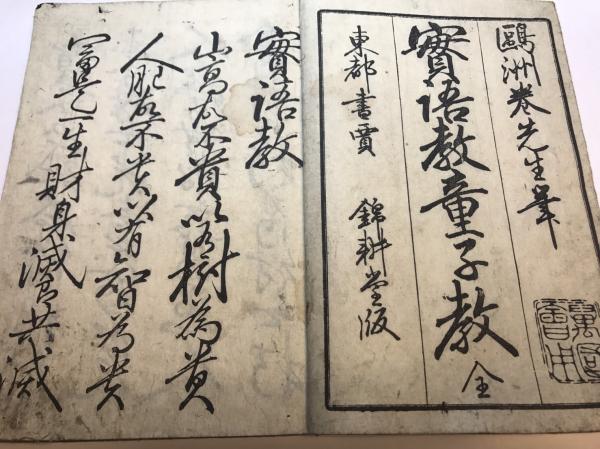 鷗洲巻先生筆
實語教童子教 全
東都書賈 錦耕堂版
實語教
山高故不貴以樹為貴
人肥故不貴以有智為貴
富是一生財身滅即共滅